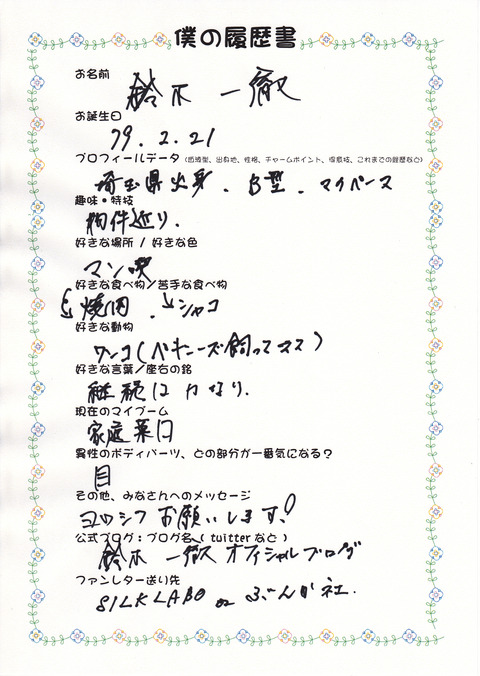 僕の履歴書
お名前
鈴木 一徹
お誕生日
79.2.21
プロフィールデータ (血液型、出身地、性格、チャームポイント、得意技、これまでの履歴など)
埼玉県出身、B型、マイペース
趣味・特技
物件巡り、
好きな場所 / 好きな色
マン喫
好きな食べ物/苦手な食べ物
焼肉 、シャコ
好きな動物
ワンコ(ペキニーズ飼ってマス)
好きな言葉/座右の銘
継続は力なり、
現在のマイブーム
家庭菜園
異性のボディパーツ、どの部分が一番気になる？
目
その他、みなさんへのメッセージ
ヨロシクお願いします!
公式ブログ：ブログ名 ( tuitterなど )
鈴木 一徹 オフィシャルブログ
ファンレター送り先
SILK LABO or ぶんか社.